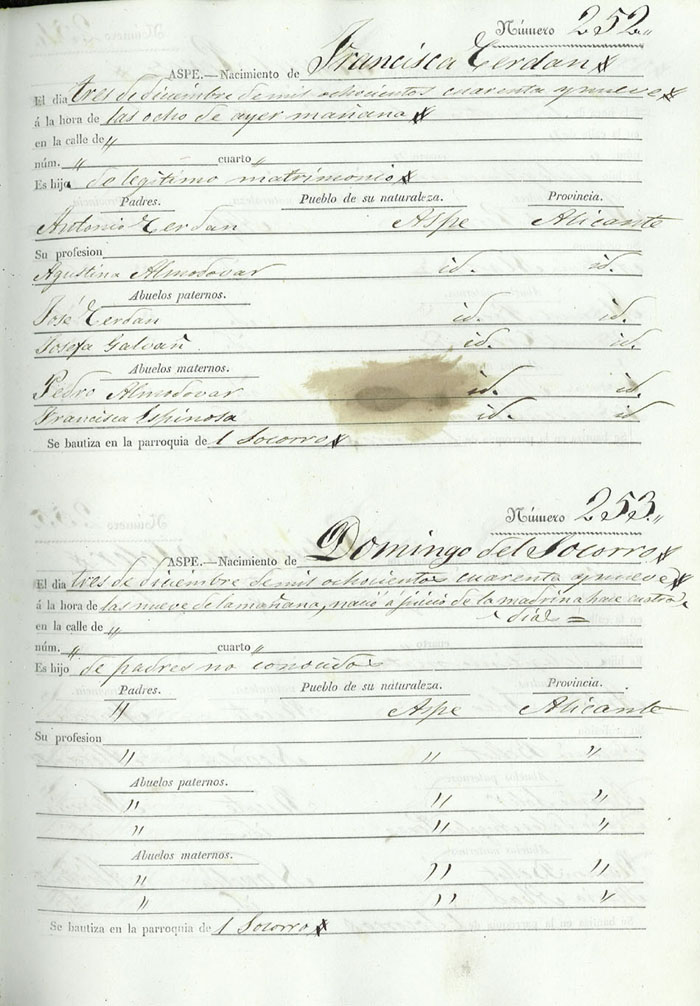 Número 252〃
ASPE.—Nacimiento de Francisca Cerdan
El dia tres de diciembre de mil ochocientos cuarenta y nueve
á la hora de las ocho de ayer mañana
en la calle de 〃
núm. 〃 cuarto 〃
Es hija de legitimo matrimonio
Padres. Pueblo de su naturaleza. Provincia.
Antonio Cerdan Aspe Alicante
Su profesion
Agustina Almodovar id. id.
Abuelos paternos.
José Cerdan id. id.
Josefa Galvañ id. id.
Abuelos maternos.
Pedro Almodovar id. id.
Francisca Espinosa id. id
Se bautiza en la parroquia de l Socorro
Número 253〃
ASPE.—Nacimiento de Domingo del Socorro
El dia tres de diciembre de mil ochocientos cuarenta y nueve
á la hora de las nueve de la mañana, nació á juicio de la madrina hace cuatro
en la calle de 〃 dias =
núm. 〃 cuarto 〃
Es hijo de padres no conocidos
Padres. Pueblo de su naturaleza. Provincia.
〃 Aspe Alicante
Su profesion
〃 〃 〃
Abuelos paternos.
〃 〃 〃
〃 〃 〃
Abuelos maternos.
〃 〃 〃
〃 〃 〃
Se bautiza en la parroquia de l Socorro